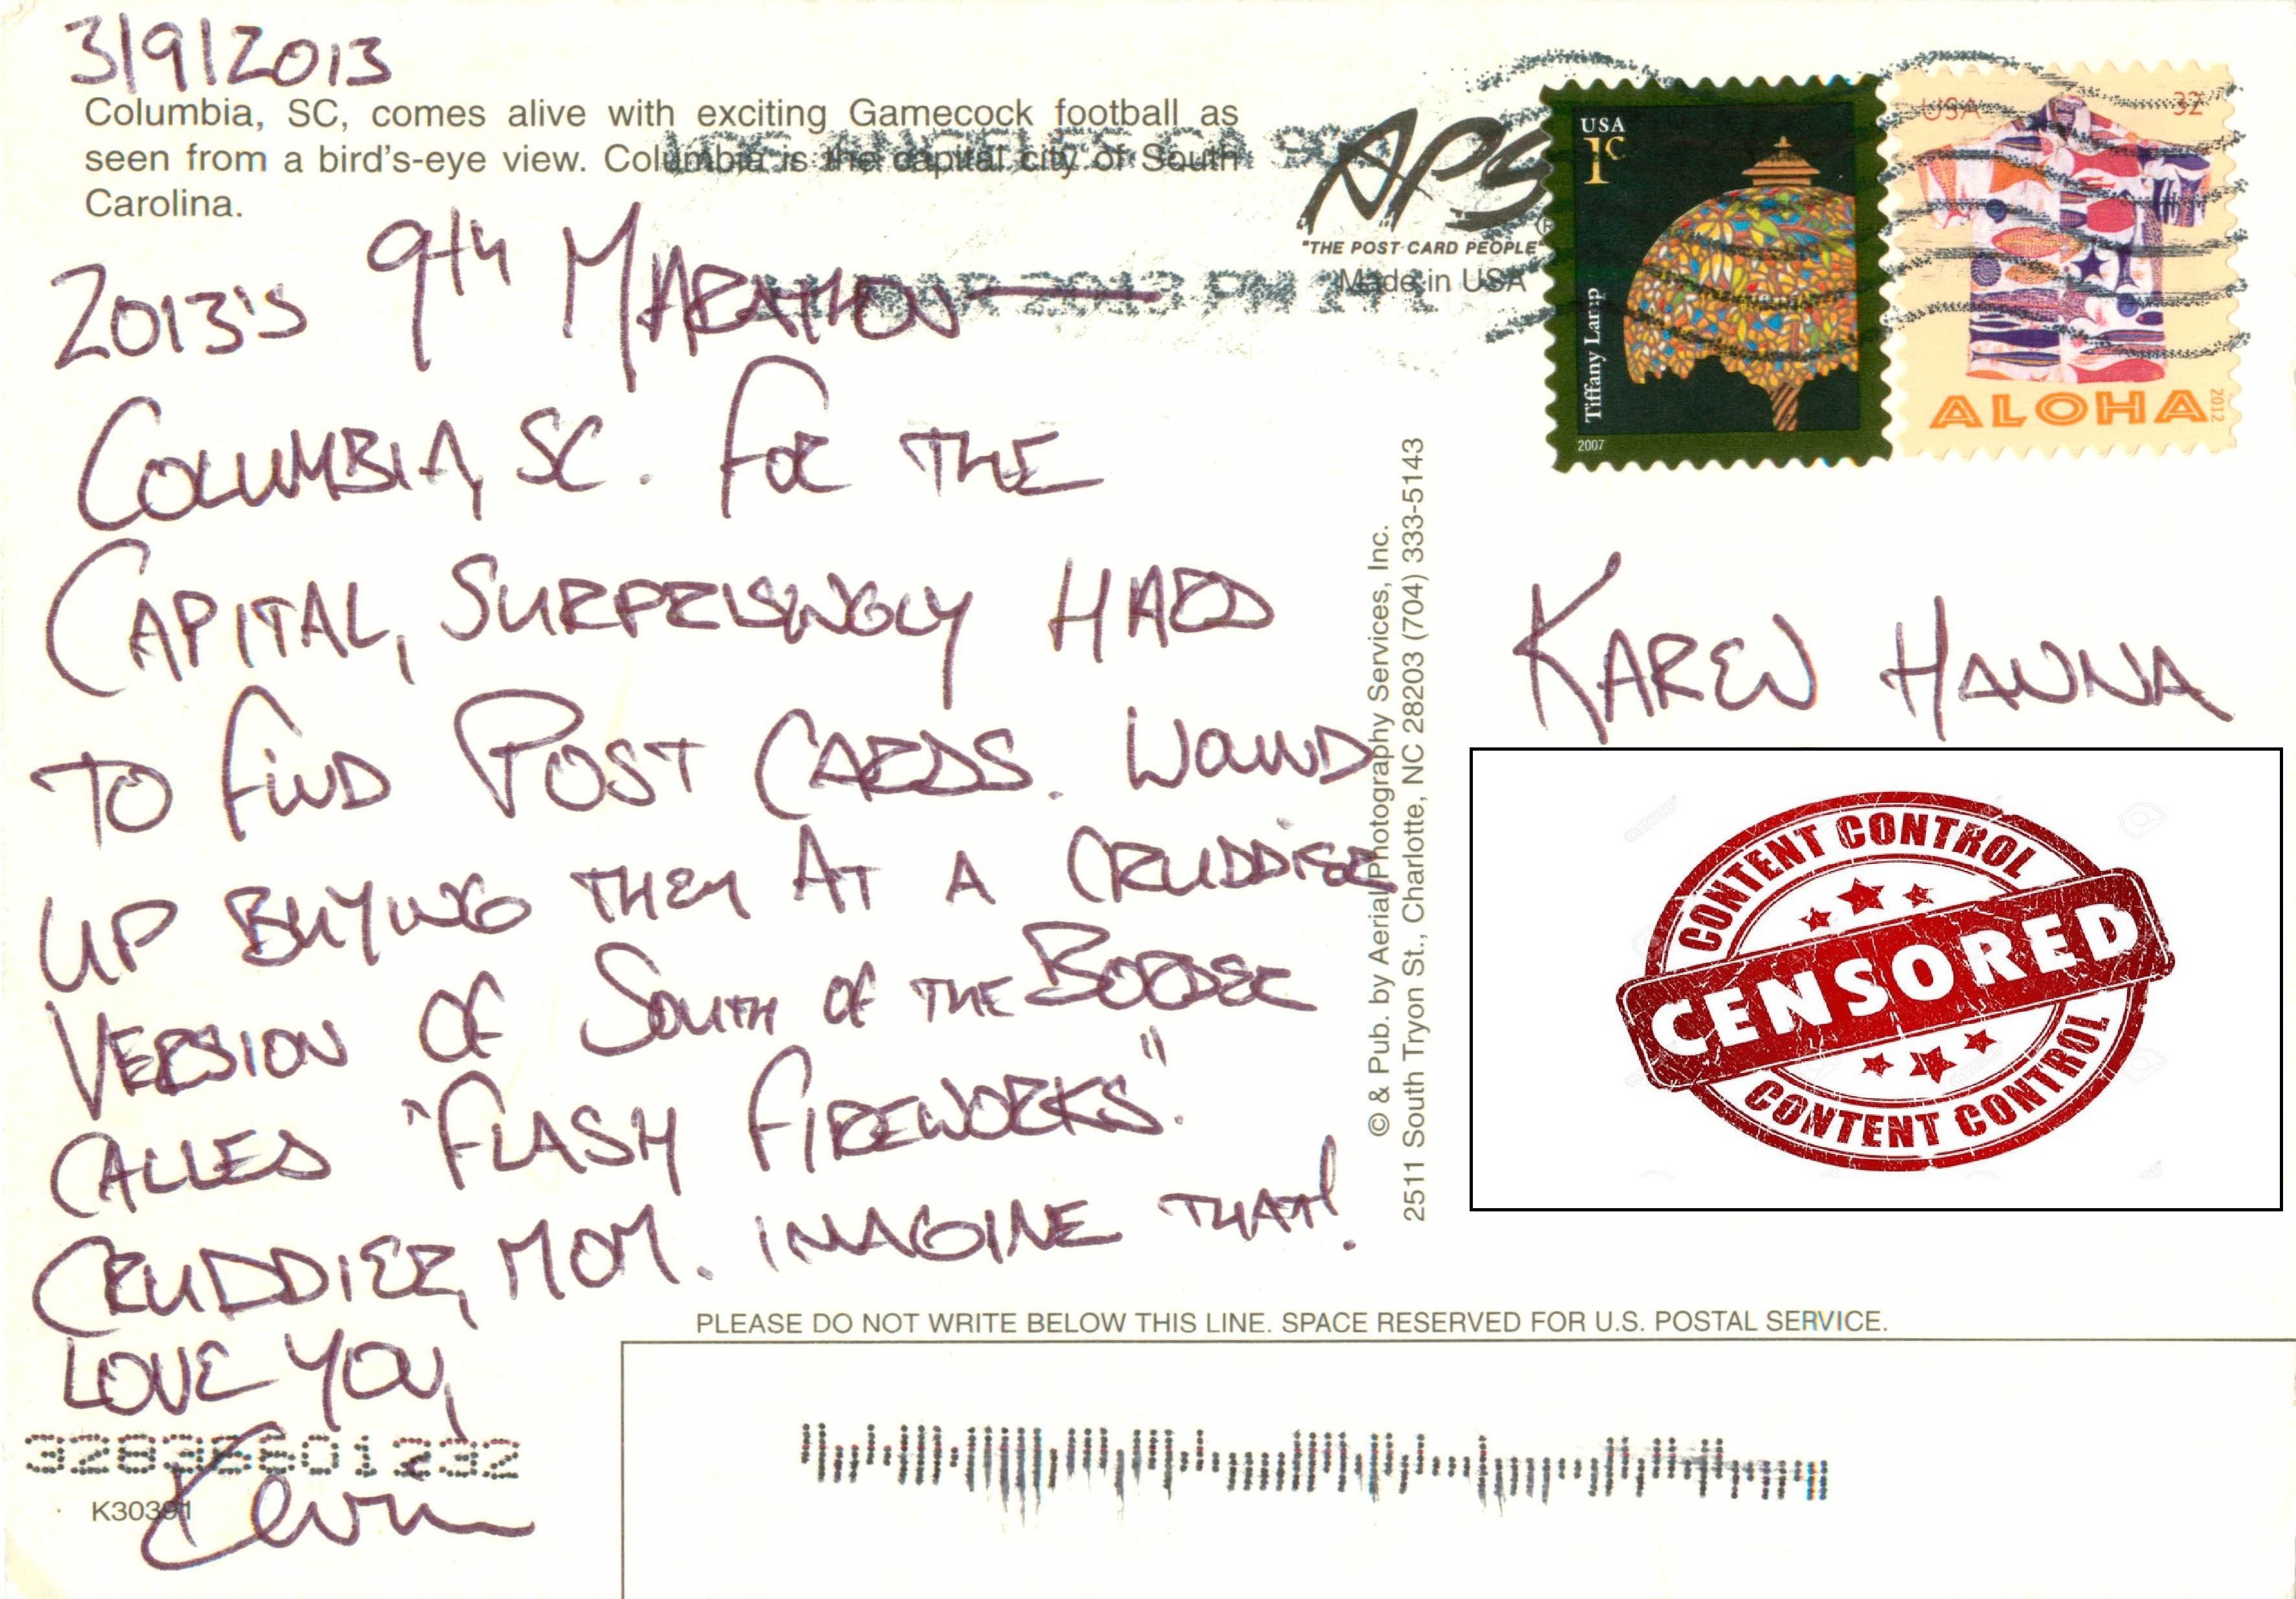 3/9/2013
Columbia, SC, comes alive with exciting Gamecock football as
seen from a bird's-eye view. Columbia is the capital city of South
Carolina.
2013's 9th MARATHON—
COLUMBIA, SC. FOR THE
CAPITAL, SURPRISINGLY HARD
TO FIND POST CARDS. WOUND
UP BUYING THEM AT A CRUDDIER
VERSION OF SOUTH OF THE BORDER
CALLED "FLASH FIREWORKS."
CRUDDIER, MOM. IMAGINE THAT!
LOVE YOU,
Kevin
32836601232
K30391
LOS ANGELES CA
MAR 2013 PM
APS
"THE POST CARD PEOPLE"
Made in USA
USA
1c
Tiffany Lamp
2007
USA 32
ALOHA
2012
© & Pub. by Aerial Photography Services, Inc.
2511 South Tryon St., Charlotte, NC 28203 (704) 333-5143
KAREN HANNA
CONTENT CONTROL
CENSORED
CONTENT CONTROL
PLEASE DO NOT WRITE BELOW THIS LINE. SPACE RESERVED FOR U.S. POSTAL SERVICE.